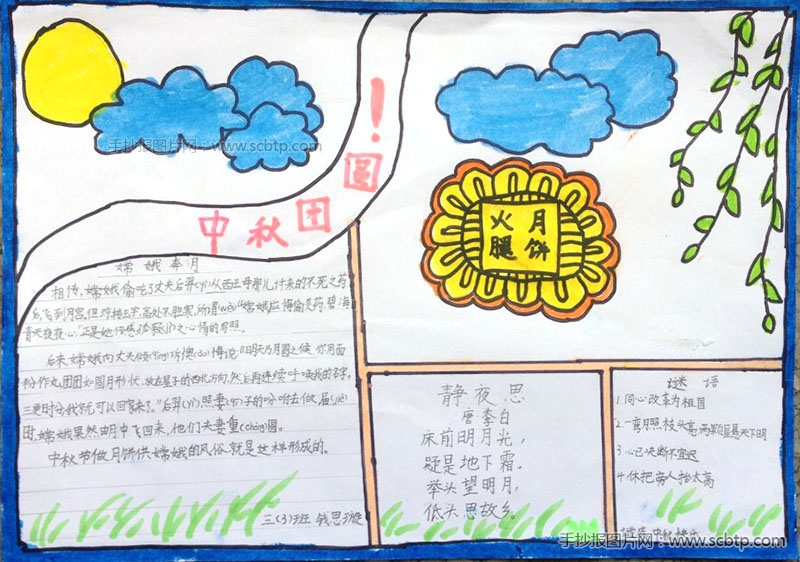 中秋团圆！
手抄报图片网：www.scbtp.com
火腿
月饼
嫦娥奔月
相传，嫦娥偷吃了丈夫后羿(yì)从西王母那儿讨来的不死之药
后，飞到月宫。但琼楼玉宇，高处不胜寒，所谓(wèi)“嫦娥应悔偷灵药，碧海
青天夜夜心。”正是她
心情的写照。
后来，嫦娥向丈夫倾(qīng)诉懊(ào)悔说：“明天乃月圆之候，你用面
粉作丸，团团如圆月形状，放在屋子的西北方向，然后再连续呼唤我的名字。
三更时分，我就可以回家来了。”后羿(yì)照妻(qī)子的吩咐去做，届(jiè)
时，嫦娥果然由月中飞回来，他们夫妻重(chóng)圆。
中秋节做月饼供嫦娥的风俗，就是这样形成的。
三(3)班 钱思璇
静夜思
唐 李白
床前明月光，
疑是地下霜。
举头望明月，
低头思故乡。
谜语
1.同心改革为祖国
2.一弯月照枝头亮，两颗星悬天下明
3.心已决断不宜迟
4.休把旁人抬太高
手抄报图片网：www.scbtp.com